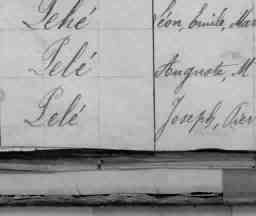 Pehé Léon, Emile, Mar
Pelé Auguste, M
Pelé Joseph, Pier